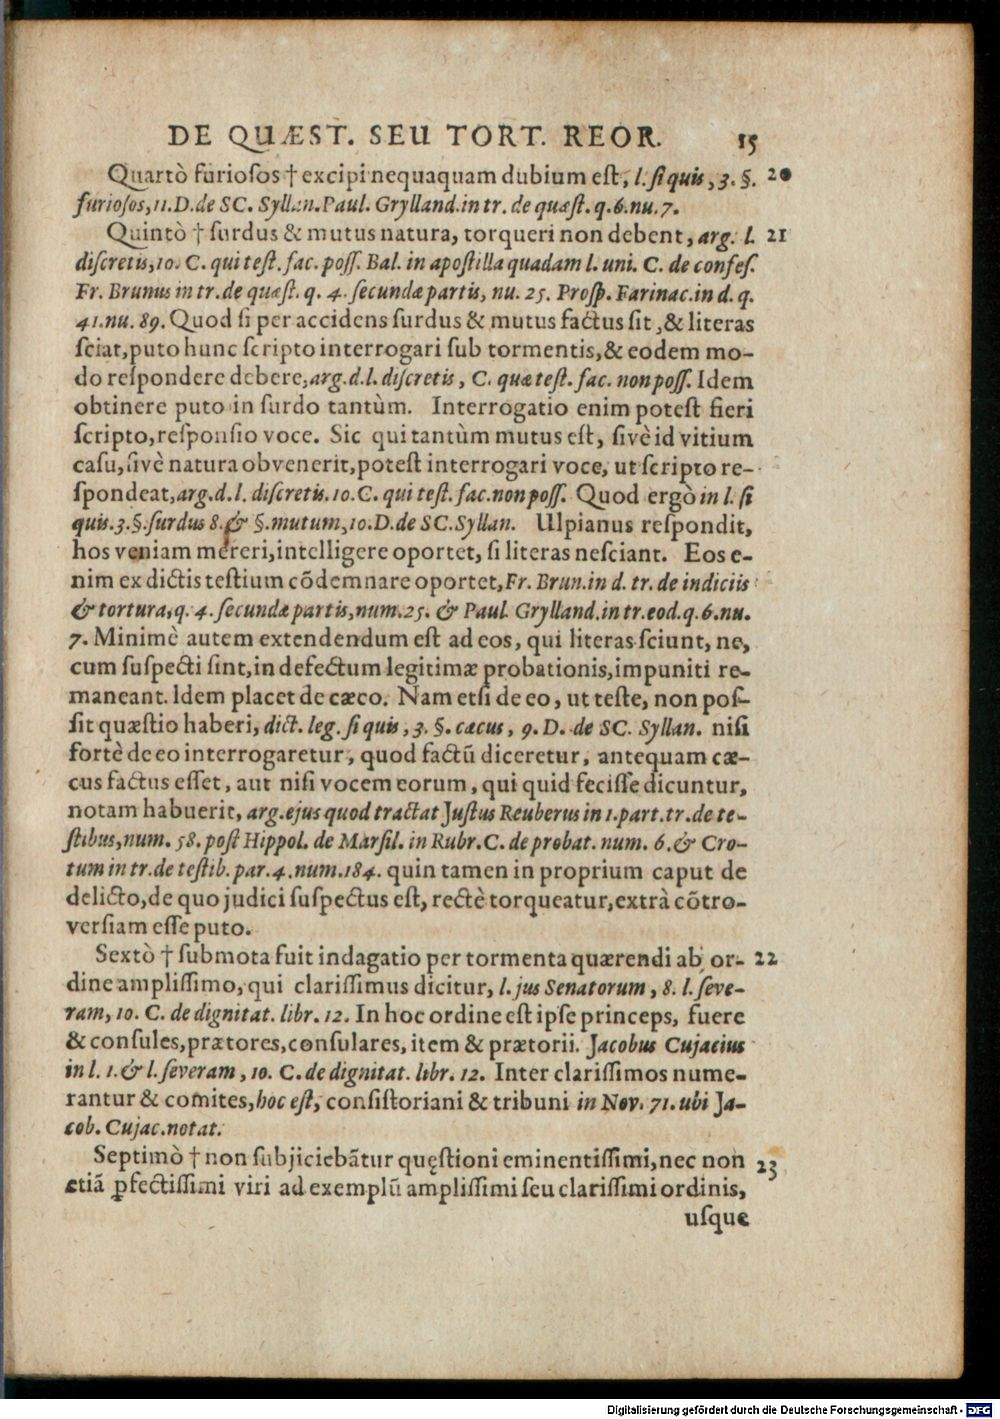 DE QUÆST. SEU TORT. REOR. 15
Quartò furiosos † excipi nequaquam dubium est, l. si quis, 3. §. 20
furiosos, 11. D. de SC. Syllan. Paul. Grylland. in tr. de quæst. q. 6. nu. 7.
Quintò † surdus & mutus natura, torqueri non debent, arg. l. 21
discretis, 10. C. qui test. fac. poss. Bal. in apostilla quadam l. uni. C. de confes.
Fr. Brunus in tr. de quæst. q. 4. secundæ partis, nu. 25. Prosp. Farinac. in d. q.
41. nu. 89. Quod si per accidens surdus & mutus factus sit, & literas
sciat, puto hunc scripto interrogari sub tormentis, & eodem mo-
do respondere debere, arg. d. l. discretis, C. quæ test. fac. non poss. Idem
obtinere puto in surdo tantùm. Interrogatio enim potest fieri
scripto, responsio voce. Sic qui tantùm mutus est, sivè id vitium
casu, sivè natura obvenerit, potest interrogari voce, ut scripto re-
spondeat, arg. d. l. discretis. 10. C. qui test. fac. non poss. Quod ergò in l. si
quis. 3. §. surdus 8. & §. mutum, 10. D. de SC. Syllan. Ulpianus respondit,
hos veniam mereri, intelligere oportet, si literas nesciant. Eos e-
nim ex dictis testium cõdemnare oportet, Fr. Brun. in d. tr. de indiciis
& tortura, q. 4. secundæ partis, num. 25. & Paul. Grylland. in tr. eod. q. 6. nu.
7. Minimè autem extendendum est ad eos, qui literas sciunt, ne,
cum suspecti sint, in defectum legitimæ probationis, impuniti re-
maneant. Idem placet de cæco. Nam etsi de eo, ut teste, non pos-
sit quæstio haberi, dict. leg. si quis, 3. §. cæcus, 9. D. de SC. Syllan. nisi
fortè de eo interrogaretur, quod factũ diceretur, antequam cæ-
cus factus esset, aut nisi vocem eorum, qui quid fecisse dicuntur,
notam habuerit, arg. ejus quod tractat Justus Reuberus in 1. part. tr. de te-
stibus, num. 58. post Hippol. de Marsil. in Rubr. C. de probat. num. 6. & Cro-
tum in tr. de testib. par. 4. num. 184. quin tamen in proprium caput de
delicto, de quo judici suspectus est, rectè torqueatur, extrà cõtro-
versiam esse puto.
Sextò † submota fuit indagatio per tormenta quærendi ab or- 22
dine amplissimo, qui clarissimus dicitur, l. jus Senatorum, 8. l. seve-
ram, 10. C. de dignitat. libr. 12. In hoc ordine est ipse princeps, fuere
& consules, prætores, consulares, item & prætorii. Jacobus Cujacius
in l. 1. & l. severam, 10. C. de dignitat. libr. 12. Inter clarissimos nume-
rantur & comites, hoc est, consistoriani & tribuni in Nov. 71. ubi Ja-
cob. Cujac. notat.
Septimò † non subjiciebãtur quęstioni eminentissimi, nec non 23
etiã ꝑfectissimi viri ad exemplũ amplissimi seu clarissimi ordinis,
usque
Digitalisierung gefördert durch die Deutsche Forschungsgemeinschaft - DFG